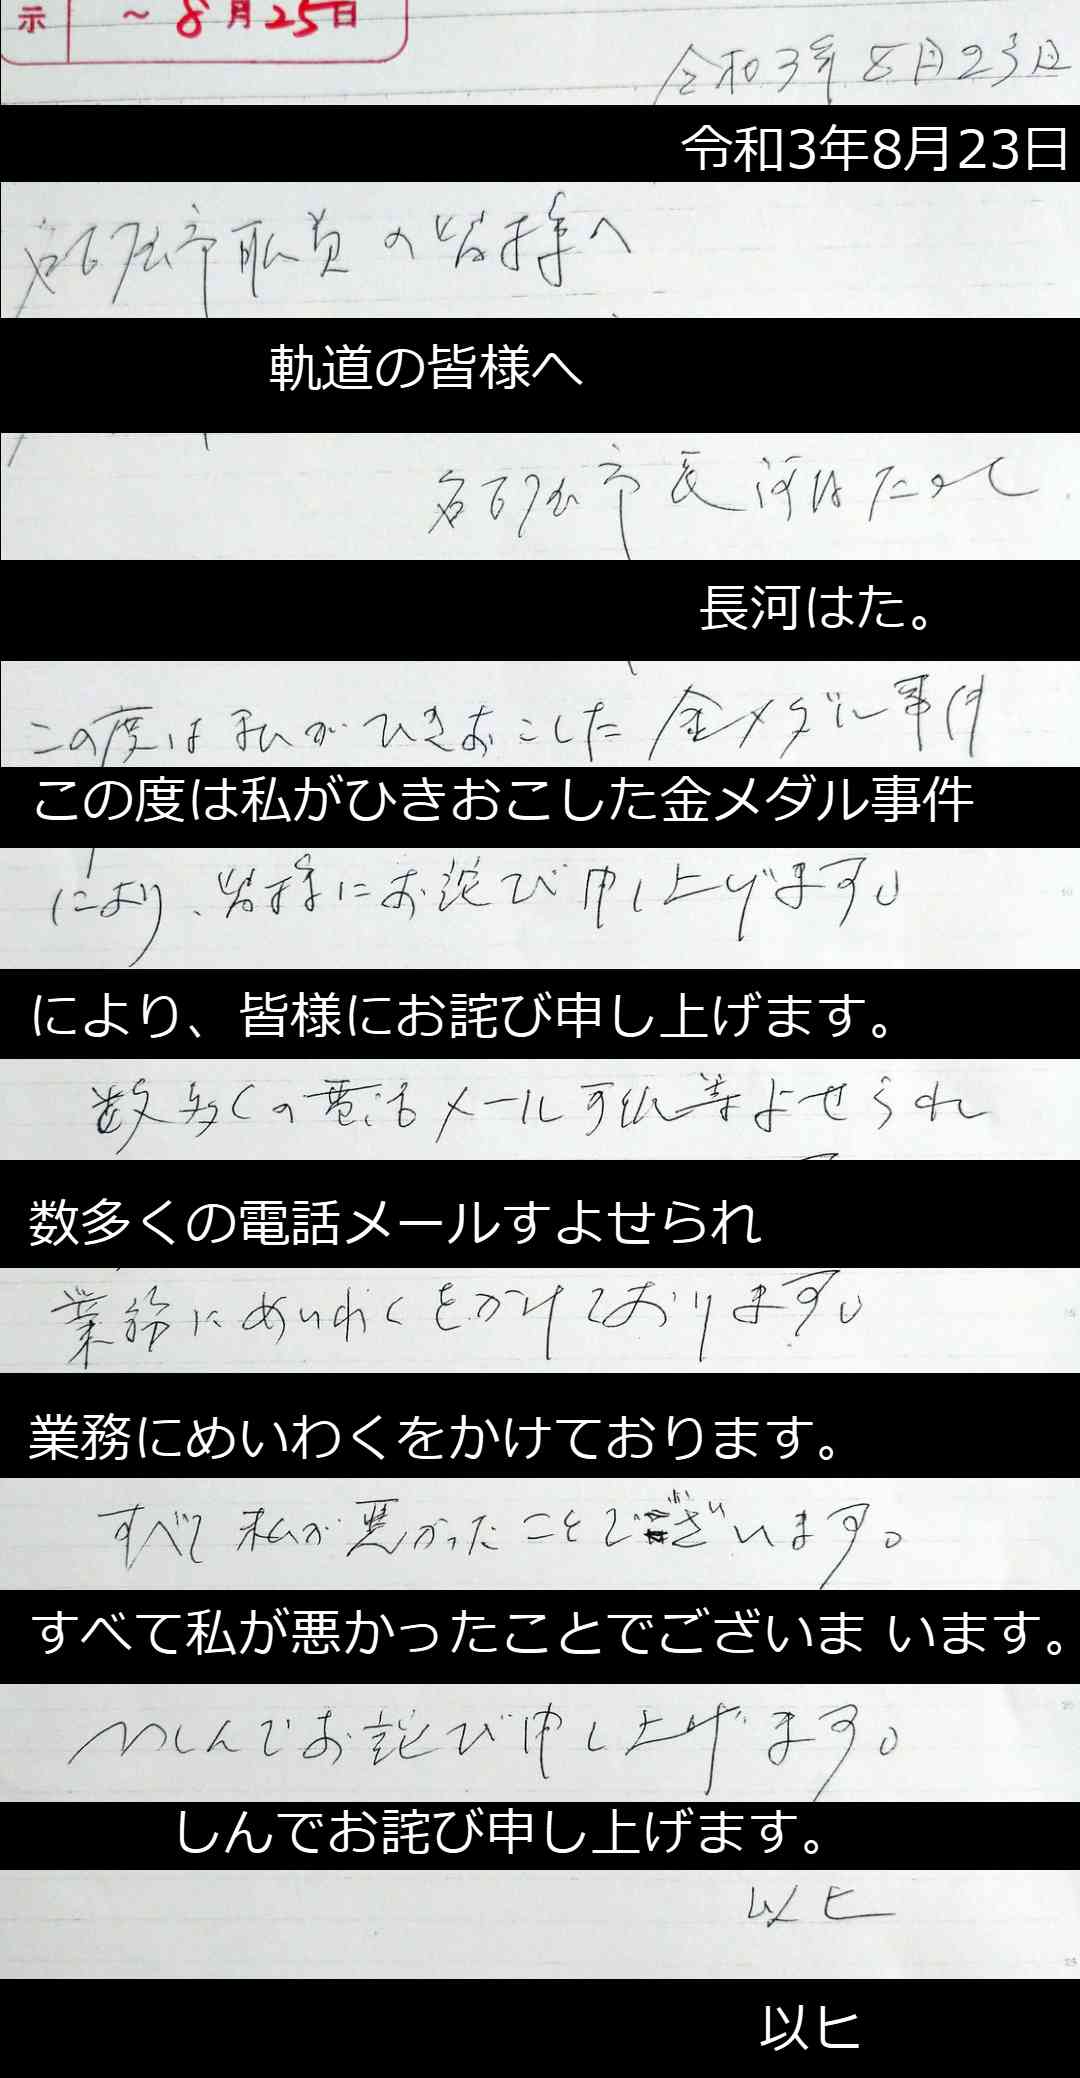 示 ～8月25日
令和3年8月23日
令和3年8月23日
名古屋市職員の皆様へ
軌道の皆様へ
名古屋市長 河村たかし
長河はた。
この度は私がひきおこした金メダル事件
この度は私がひきおこした金メダル事件
により、皆様にお詫び申し上げます。
により、皆様にお詫び申し上げます。
数多くの電話メール手紙等よせられ
数多くの電話メールすよせられ
業務にめいわくをかけております。
業務にめいわくをかけております。
すべて私が悪かったことでございます。
すべて私が悪かったことでございま います。
つつしんでお詫び申し上げます。
しんでお詫び申し上げます。
以上
以ヒ